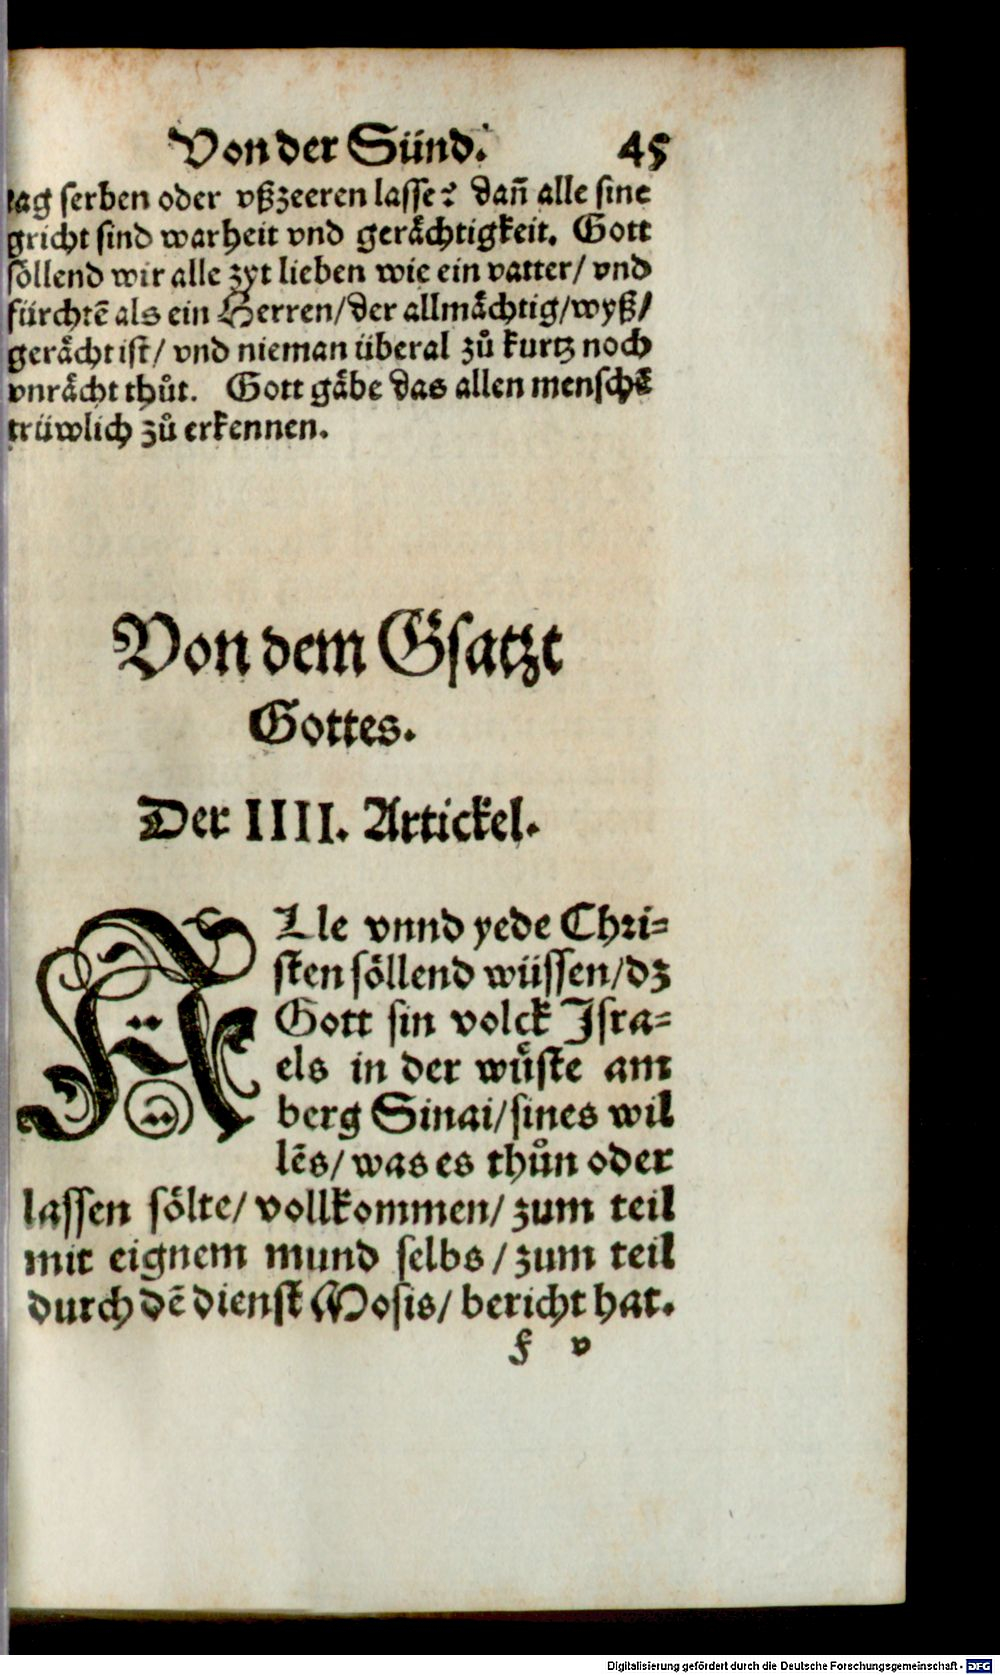 Von der Sünd. 45
tag serben oder vßzeeren lasse? dañ alle sine
gricht sind warheit vnd gerächtigkeit. Gott
söllend wir alle zyt lieben wie ein vatter/ vnd
fürchtē als ein Herren/ der allmächtig/ wyß/
gerächt ist/ vnd nieman überal zů kurtz noch
vnrächt thůt. Gott gäbe das allen menschē
trüwlich zů erkennen.
Von dem Gsatzt
Gottes.
Der IIII. Artickel.
ALle vnnd yede Chri-
sten söllend wüssen/ dz
Gott sin volck Isra-
els in der wůste am
berg Sinai/ sines wil
lēs/ was es thůn oder
lassen sölte/ vollkommen/ zum teil
mit eignem mund selbs/ zum teil
durch dē dienst Mosis/ bericht hat.
f v
Digitalisierung gefördert durch die Deutsche Forschungsgemeinschaft - DFG